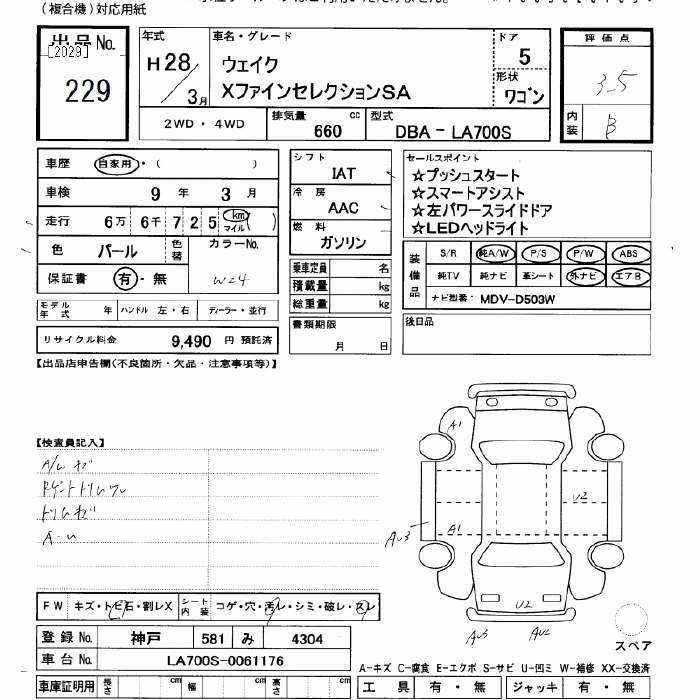 (複合機)対応用紙
出品No.
[2029]
229
年式
H28/3月
車名・グレード
ウェイク
XファインセレクションSA
ドア
5
形状
ワゴン
2WD・4WD
排気量
660 cc
型式
DBA-LA700S
評価点
3.5
内装
B
車歴 自家用・( )
車検 9年 3月
走行 6万 6千 7 2 5 km マイル ( )
色 パール 色替 カラーNo.
W24
保証書 有・無
モデル年式 年 ハンドル 左・右 ディーラー・並行
リサイクル料金 9,490 円 預託済
シフト
IAT
冷房
AAC
燃料
ガソリン
乗車定員 名
積載量 kg
総重量 kg
書類期限
月 日
セールスポイント
☆プッシュスタート
☆スマートアシスト
☆左パワースライドドア
☆LEDヘッドライト
装備品
S/R 純A/W P/S P/W ABS
純TV 純ナビ 革シート 外ナビ エアB
ナビ型番: MDV-D503W
後日品
【出品店申告欄(不良箇所・欠品・注意事項等)】
【検査員記入】
A/W キズ
トリムキズ
A・U
A1
U2
A1
AU3
U2
AU3
AU2
スペア
FW キズ・トビ石・割レX
シート内装 コゲ・穴・汚レ・シミ・破レ・スレ
登録No. 神戸 581 み 4304
車台No. LA700S-0061176
車庫証明用 長さ cm 幅 cm 高さ cm
A-キズ C-腐食 E-エクボ S-サビ U-凹ミ W-補修 XX-交換済
工具 有・無 ジャッキ 有・無